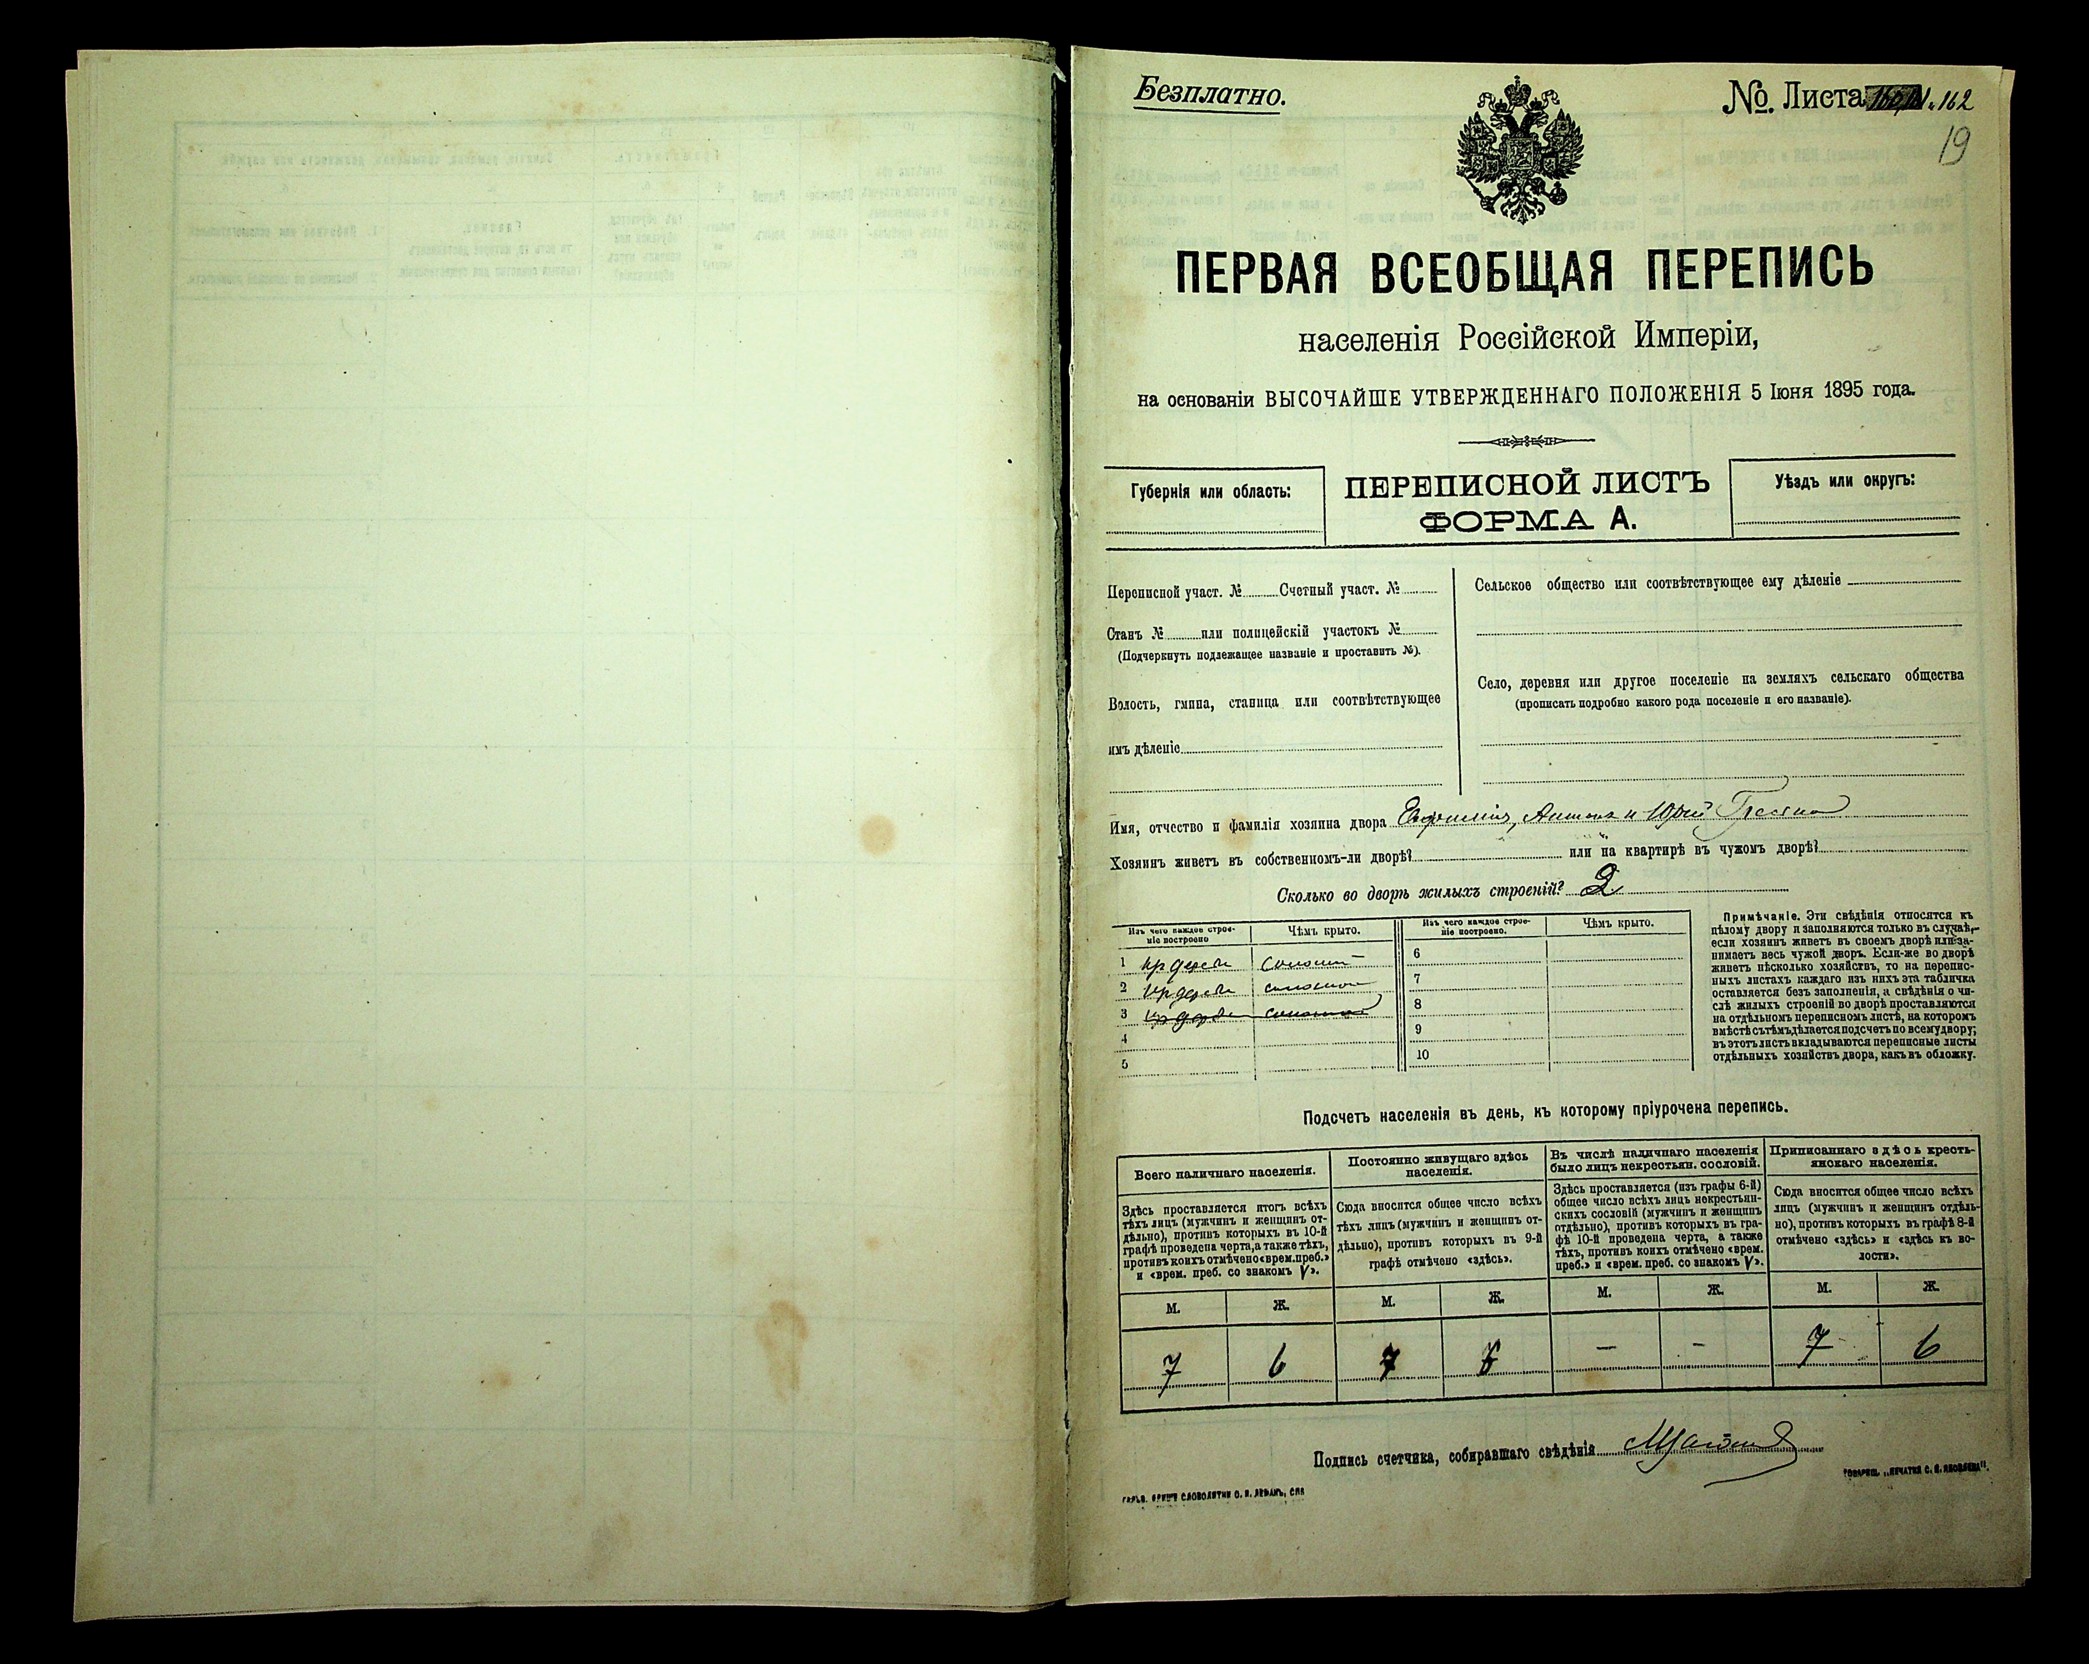 Безплатно.
№. Листа 162
19
ПЕРВАЯ ВСЕОБЩАЯ ПЕРЕПИСЬ
населенія Россійской Имперіи,
на основаніи ВЫСОЧАЙШЕ УТВЕРЖДЕННАГО ПОЛОЖЕНІЯ 5 Іюня 1895 года.
Губернія или область:
ПЕРЕПИСНОЙ ЛИСТЪ
ФОРМА А.
Уѣздъ или округъ:
Переписной участ. № Счетный участ. №
Станъ № или полицейскій участокъ №
(Подчеркнуть подлежащее названіе и проставить №).
Волость, гмина, станица или соотвѣтствующее
имъ дѣленіе
Сельское общество или соотвѣтствующее ему дѣленіе
Село, деревня или другое поселеніе на земляхъ сельскаго общества
(прописать подробно какого рода поселеніе и его названіе).
Имя, отчество и фамилія хозяина двора Антонъ и Юрій
Хозяинъ живетъ въ собственномъ-ли дворѣ? или на квартирѣ въ чужомъ дворѣ?
Сколько во дворѣ жилыхъ строеній? 2
Изъ чего каждое строе-
ніе построено
Чѣмъ крыто.
1
2
3
4
5
Изъ чего каждое строе-
ніе построено.
Чѣмъ крыто.
6
7
8
9
10
Примѣчаніе. Эти свѣдѣнія относятся къ
цѣлому двору и заполняются только въ случаѣ,
если хозяинъ живетъ въ своемъ дворѣ или за-
нимаетъ весь чужой дворъ. Если-же во дворѣ
живетъ нѣсколько хозяйствъ, то на перепис-
ныхъ листахъ каждаго изъ нихъ эта табличка
оставляется безъ заполненія, а свѣдѣнія о чи-
слѣ жилыхъ строеній во дворѣ проставляются
на отдѣльномъ переписномъ листѣ, на которомъ
вмѣстѣ съ тѣмъ дѣлается подсчетъ по всему двору;
въ этотъ листъ вкладываются переписные листы
отдѣльныхъ хозяйствъ двора, какъ въ обложку.
Подсчетъ населенія въ день, къ которому пріурочена перепись.
Всего наличнаго населенія.
Здѣсь проставляется итогъ всѣхъ
тѣхъ лицъ (мужчинъ и женщинъ от-
дѣльно), противъ которыхъ въ 10-й
графѣ проведена черта, а также тѣхъ,
противъ коихъ отмѣчено «врем. преб.»
и «врем. преб. со знакомъ V».
Постоянно живущаго здѣсь
населенія.
Сюда вносится общее число всѣхъ
тѣхъ лицъ (мужчинъ и женщинъ от-
дѣльно), противъ которыхъ въ 9-й
графѣ отмѣчено «здѣсь».
Въ числѣ наличнаго населенія
было лицъ некрестьян. сословій.
Здѣсь проставляется (изъ графы 6-й)
общее число всѣхъ лицъ некрестьян-
скихъ сословій (мужчинъ и женщинъ
отдѣльно), противъ которыхъ въ гра-
фѣ 10-й проведена черта, а также
тѣхъ, противъ коихъ отмѣчено «врем.
преб.» и «врем. преб. со знакомъ V».
Приписаннаго здѣсь кресть-
янскаго населенія.
Сюда вносится общее число всѣхъ
лицъ (мужчинъ и женщинъ отдѣль-
но), противъ которыхъ въ графѣ 8-й
отмѣчено «здѣсь» и «здѣсь къ во-
лости».
М. Ж. М. Ж. М. Ж. М. Ж.
7 6 7 6 — — 7 6
Подпись счетчика, собиравшаго свѣдѣнія
СЛОВОЛИТНИ О. И. ЛЕМАНЪ, СПБ
ТОВАРИЩ. „ПЕЧАТНЯ С. П. ЯКОВЛЕВА".